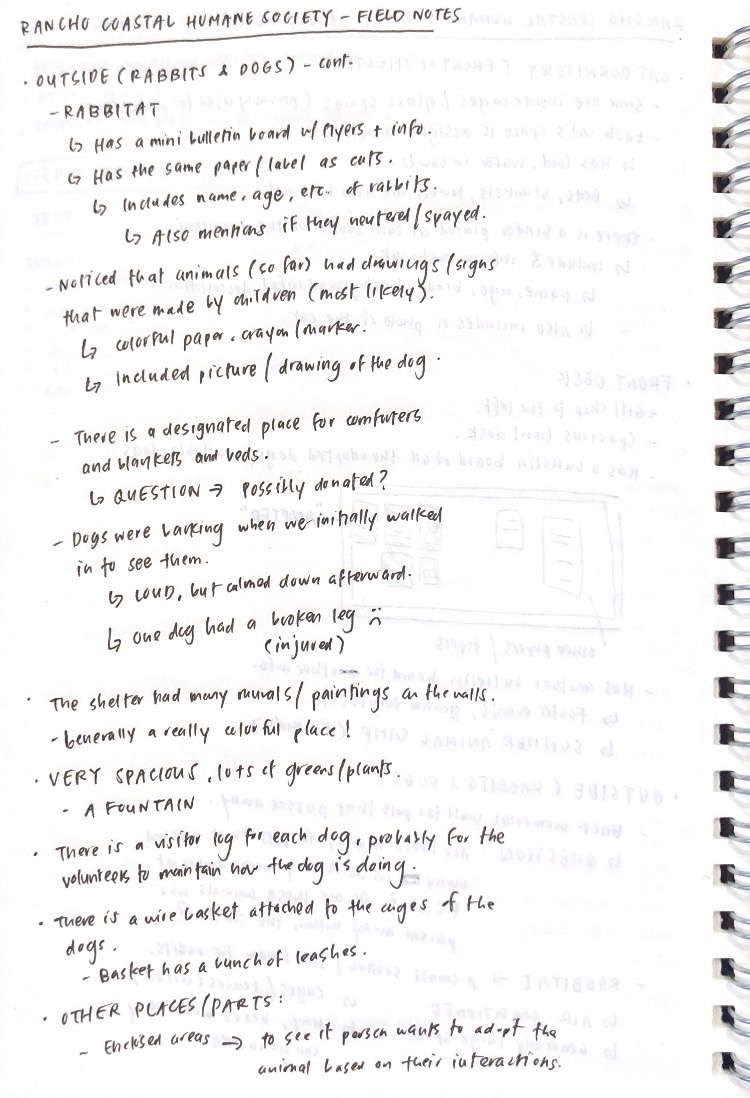 RANCHO COASTAL HUMANE SOCIETY - FIELD NOTES
• OUTSIDE (RABBITS & DOGS) - cont.
- RABBITAT
↳ Has a mini bulletin board w/ flyers + info.
↳ Has the same paper/label as cats.
↳ Includes name, age, etc. of rabbits.
↳ Also mentions if they neutered/spayed.
- Noticed that animals (so far) had drawings/signs
that were made by children (most likely).
↳ colorful paper, crayon/marker.
↳ Included picture/drawing of the dog.
- There is a designated place for comforters
and blankets and beds.
↳ QUESTION → possibly donated?
- Dogs were barking when we initially walked
in to see them.
↳ LOUD, but calmed down afterward.
↳ one dog had a broken leg :(
(injured)
• The shelter had many murals/paintings on the walls.
- Generally a really colorful place!
• VERY SPACIOUS, lots of greens/plants.
- A FOUNTAIN
• There is a visitor log for each dog, probably for the
volunteers to maintain how the dog is doing.
• There is a wire basket attached to the cages of the
dogs.
- Basket has a bunch of leashes.
• OTHER PLACES/PARTS:
- Enclosed areas → to see if person wants to adopt the
animal based on their interactions.